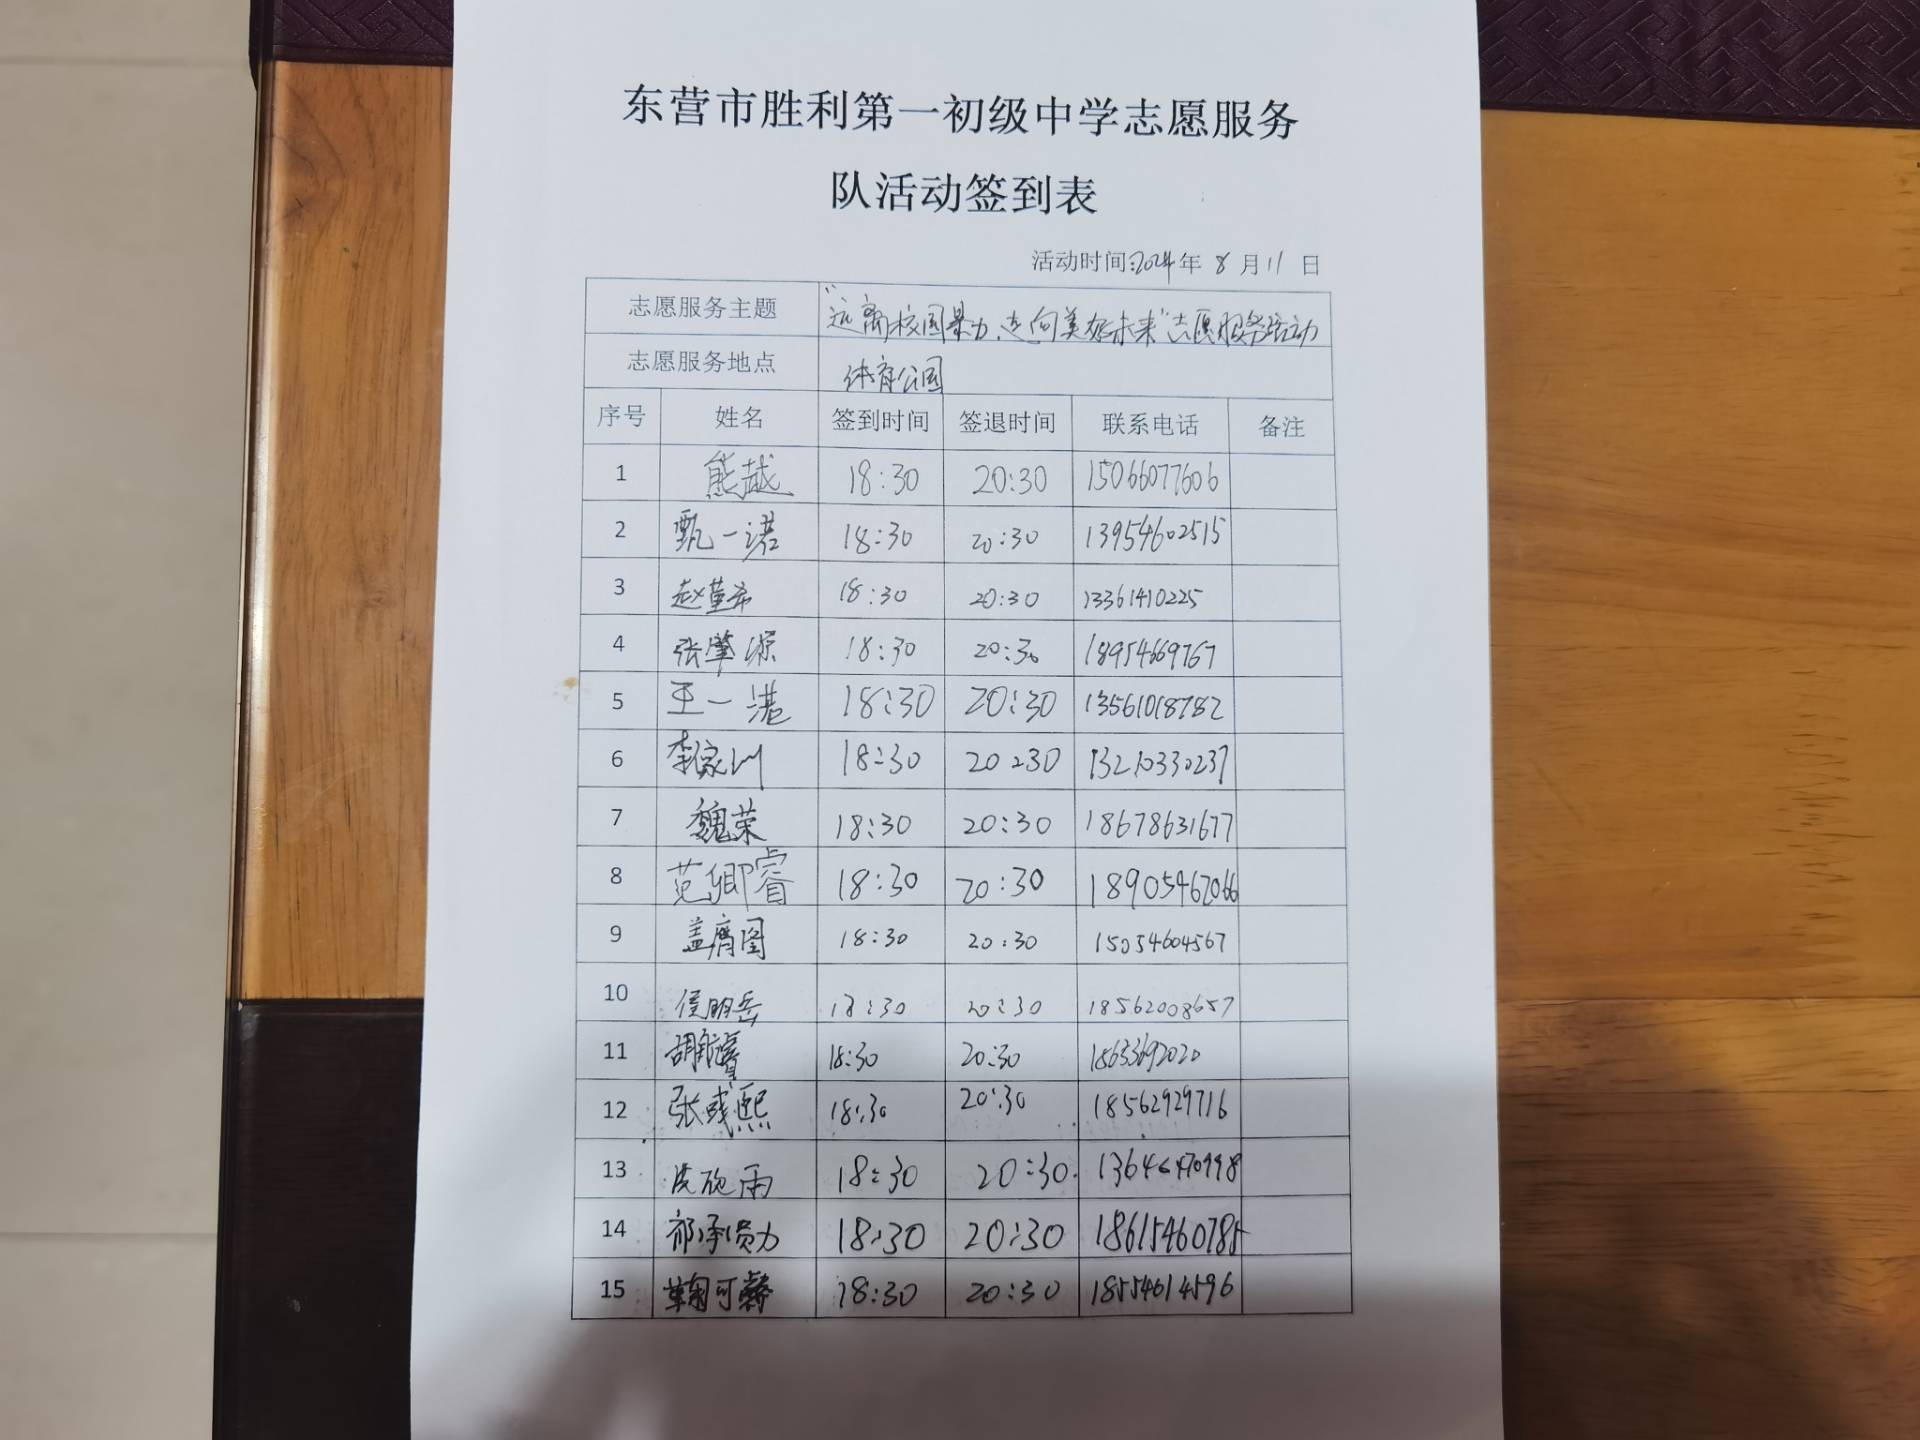 东营市胜利第一初级中学志愿服务
队活动签到表
活动时间:2024年 8 月 11 日
志愿服务主题 "远离校园暴力,走向美好未来"志愿服务活动
志愿服务地点 体育公园
序号 姓名 签到时间 签退时间 联系电话 备注
1 熊越 18:30 20:30 15066077606
2 甄一诺 18:30 20:30 13954602515
3 赵堇希 18:30 20:30 13361410225
4 张肇源 18:30 20:30 18954669767
5 王一港 18:30 20:30 13561018782
6 李家训 18:30 20:30 13210330237
7 魏荣 18:30 20:30 18678631677
8 范卿睿 18:30 20:30 18905462066
9 盖腐图 18:30 20:30 15054604567
10 侯明岳 18:30 20:30 18562008657
11 胡 18:30 20:30
12 张彧熙 18:30 20:30 18562929716
13 雨 18:30 20:30 13646470998
14 郁承勋 18:30 20:30 18615460785
15 鞠可馨 18:30 20:30 18554614596